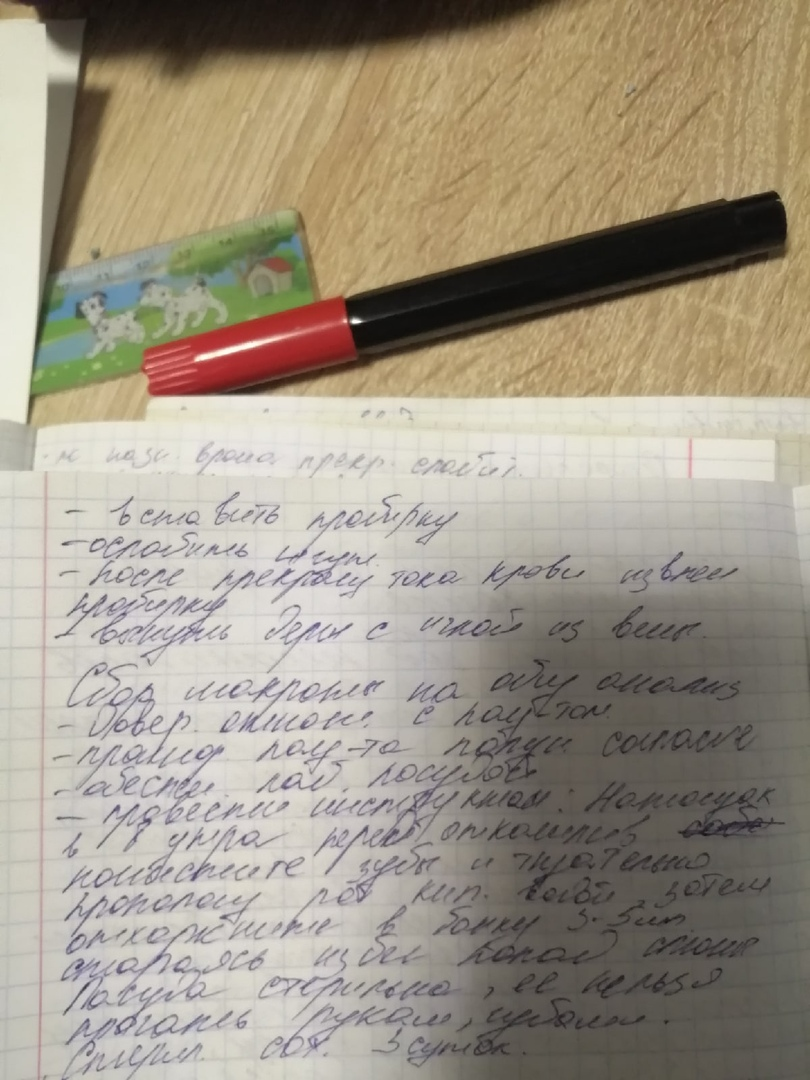 врача прекр.
- вставить пробирку
- ослабить жгут.
- после прекращ тока крови извлеч
пробирку
- вынуть держ с иглой из вены.
Сбор мокроты на общ анализ
- Довер. отнош. с пац-том.
- пац-та получ согласие
- обеспеч. лаб. посудой
- провести инструктаж: Натощак
в 8 утра перед
почистите зубы и тщательно
прополощ рот кип. водой, затем
в банку 3-5мл
стараясь избеж попад слюны
Посуда стерильна, ее нельзя
трогать рукам, губами.
Стерил. сох. 3 суток.